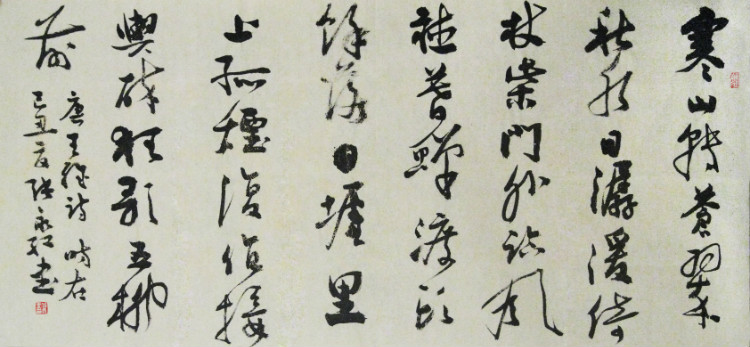 寒山轉蒼翠
秋水日潺湲倚
杖柴門外臨風
聽暮蟬渡頭
餘落日墟里
上孤煙復值接
輿醉狂歌五柳
前
唐王維詩 時在
己丑夏張永紅書